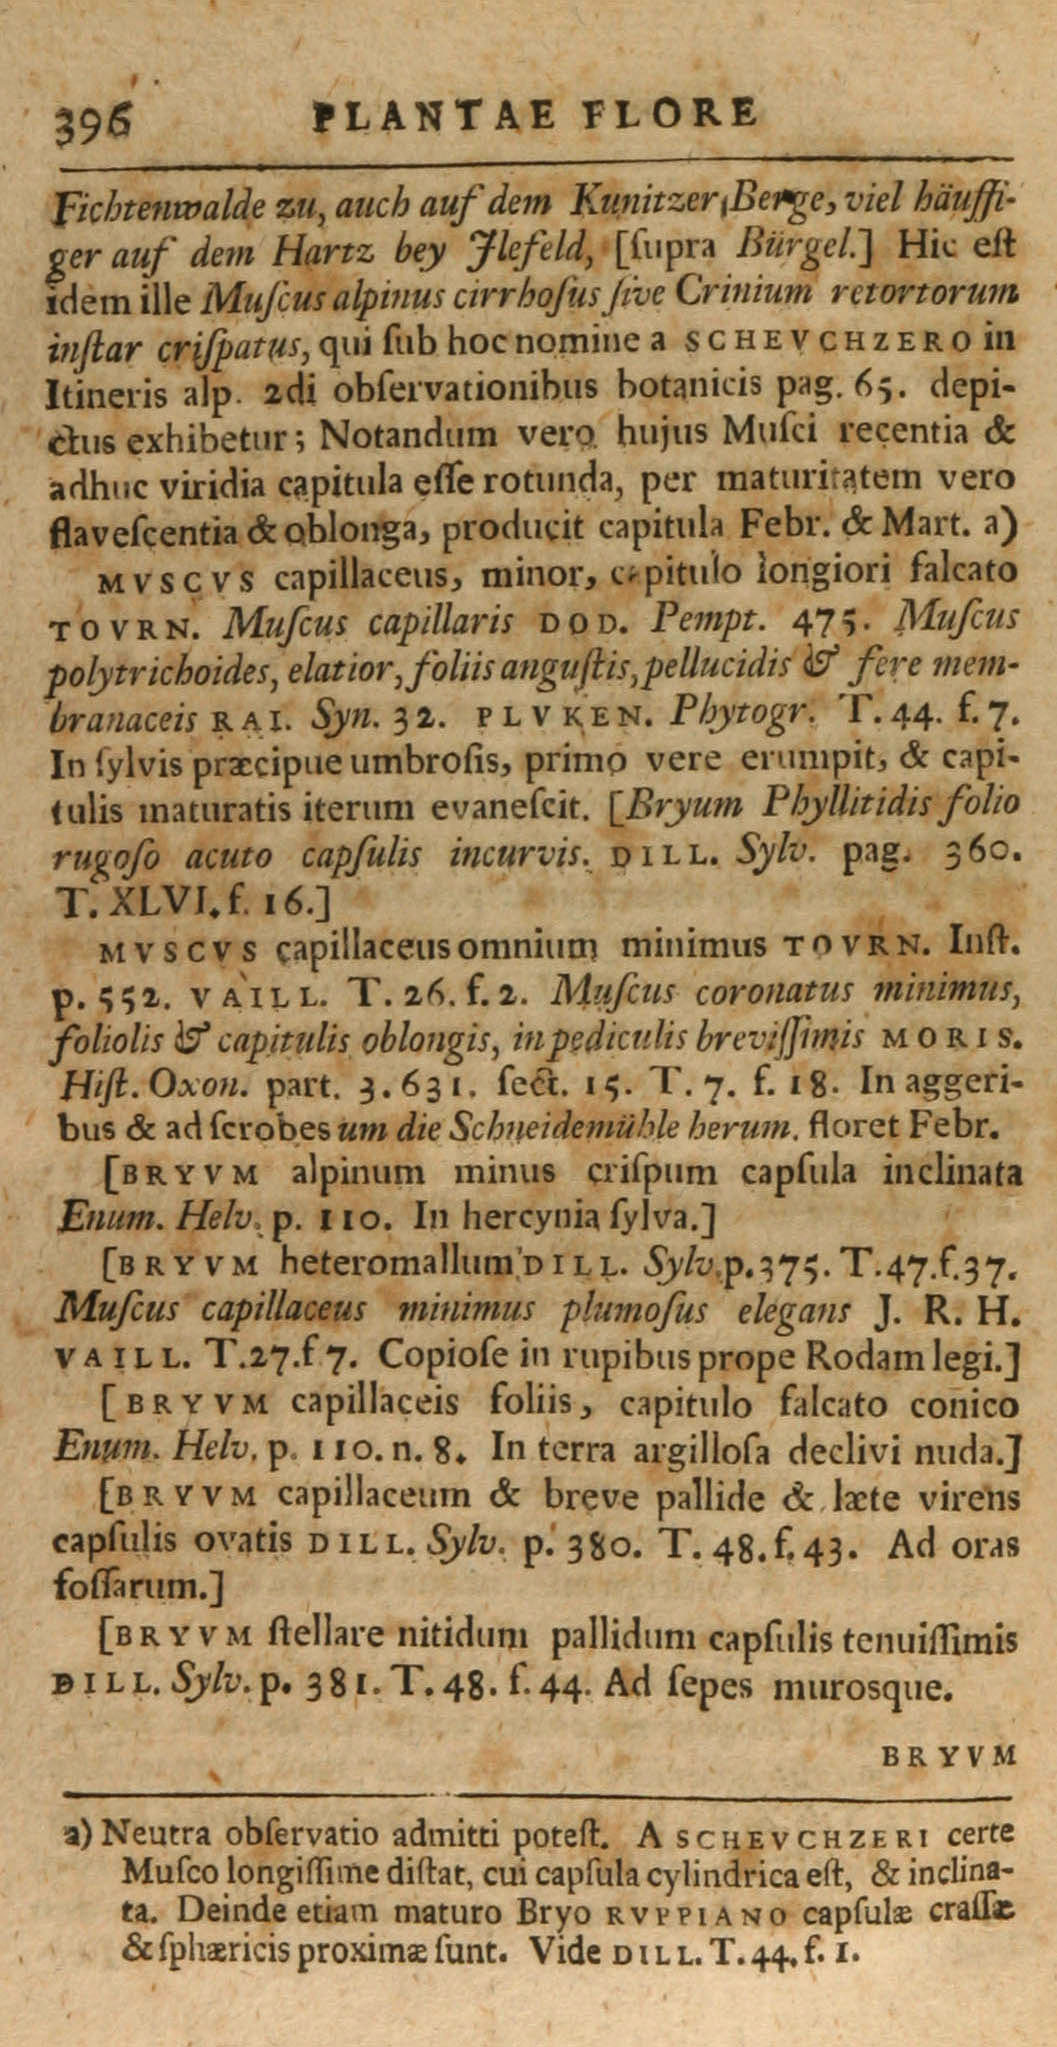 396 PLANTAE FLORE
Fichtenwalde zu, auch auf dem Kunitzer Berge, viel häuffi-
ger auf dem Hartz bey Jlefeld, [ſupra Bürgel.] Hic eſt
idem ille Muſcus alpinus cirrhoſus ſive Crinium retortorum
inſtar criſpatus, qui ſub hoc nomine a SCHEVCHZERO in
Itineris alp. 2di obſervationibus botanicis pag. 65. depi-
ctus exhibetur; Notandum vero hujus Muſci recentia &
adhuc viridia capitula eſſe rotunda, per maturitatem vero
flaveſcentia & oblonga, producit capitula Febr. & Mart. a)
MVSCVS capillaceus, minor, capitulo longiori falcato
TOVRN. Muſcus capillaris DOD. Pempt. 475. Muſcus
polytrichoides, elatior, foliis anguſtis, pellucidis & fere mem-
branaceis RAI. Syn. 32. PLVKEN. Phytogr. T. 44. f. 7.
In ſylvis præcipue umbroſis, primo vere erumpit, & capi-
tulis maturatis iterum evaneſcit. [Bryum Phyllitidis folio
rugoſo acuto capſulis incurvis. DILL. Sylv. pag. 360.
T. XLVI. f. 16.]
MVSCVS capillaceus omnium minimus TOVRN. Inſt.
p. 552. VAILL. T. 26. f. 2. Muſcus coronatus minimus,
foliolis & capitulis oblongis, in pediculis breviſſimis MORIS.
Hiſt. Oxon. part. 3. 631. ſect. 15. T. 7. f. 18. In aggeri-
bus & ad ſcrobes um die Schneidemühle herum. floret Febr.
[BRYVM alpinum minus criſpum capſula inclinata
Enum. Helv. p. 110. In hercynia ſylva.]
[BRYVM heteromallum DILL. Sylv. p. 375. T. 47. f. 37.
Muſcus capillaceus minimus plumoſus elegans J. R. H.
VAILL. T. 27. f 7. Copioſe in rupibus prope Rodam legi.]
[BRYVM capillaceis foliis, capitulo falcato conico
Enum. Helv. p. 110. n. 8. In terra argilloſa declivi nuda.]
[BRYVM capillaceum & breve pallide & læte virens
capſulis ovatis DILL. Sylv. p. 380. T. 48. f. 43. Ad oras
foſſarum.]
[BRYVM ſtellare nitidum pallidum capſulis tenuiſſimis
DILL. Sylv. p. 381. T. 48. f. 44. Ad ſepes murosque.
BRYVM
a) Neutra obſervatio admitti poteſt. A SCHEVCHZERI certe
Muſco longiſſime diſtat, cui capſula cylindrica eſt, & inclina-
ta. Deinde etiam maturo Bryo RVPPIANO capſulæ craſſæ
& ſphæricis proximæ ſunt. Vide DILL. T. 44. f. 1.